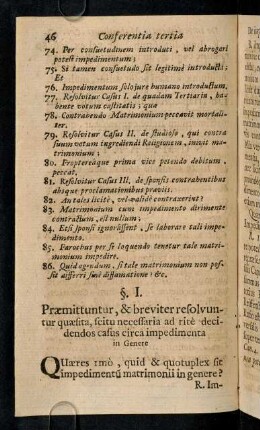 46 Conferentia tertia
74. Per consuetudinem introduci, vel abrogari
potest impedimentum;
75. Si tamen consuetudo sit legitimè introducta;
Et
76. Impedimentum solo jure humano introductum.
77. Resolvitur Casus I. de quadam Tertiaria, ha-
bente votum castitatis; quæ
78. Contrahendo Matrimonium peccavit mortali-
ter.
79. Resolvitur Casus II. de studioso, qui contra
suum votum ingrediendi Religionem, inivit ma-
trimonium;
80. Proptereaque prima vice petendo debitum,
peccat,
81. Resolvitur Casus III. de sponsis contrahentibus
absque proclamationibus præviis.
82. An tales licitè, vel validè contraxerint?
83. Matrimonium cum impedimento dirimente
contractum, est nullum;
84. Etsi sponsi ignorâssent, se laborare tali impe-
dimento.
85. Parochus per se loquendo tenetur tale matri-
monium impedire.
86. Quid agendum, si tale matrimonium non pos-
sit differri sine diffamatione? &c.
§. I.
Præmittuntur, & breviter resolvun-
tur quæsita, scitu necessaria ad ritè deci-
dendos casus circa impedimenta
in Genere
QUæres 1mò, quid & quotuplex sit
impedimentū matrimonii in genere?
R. Im-